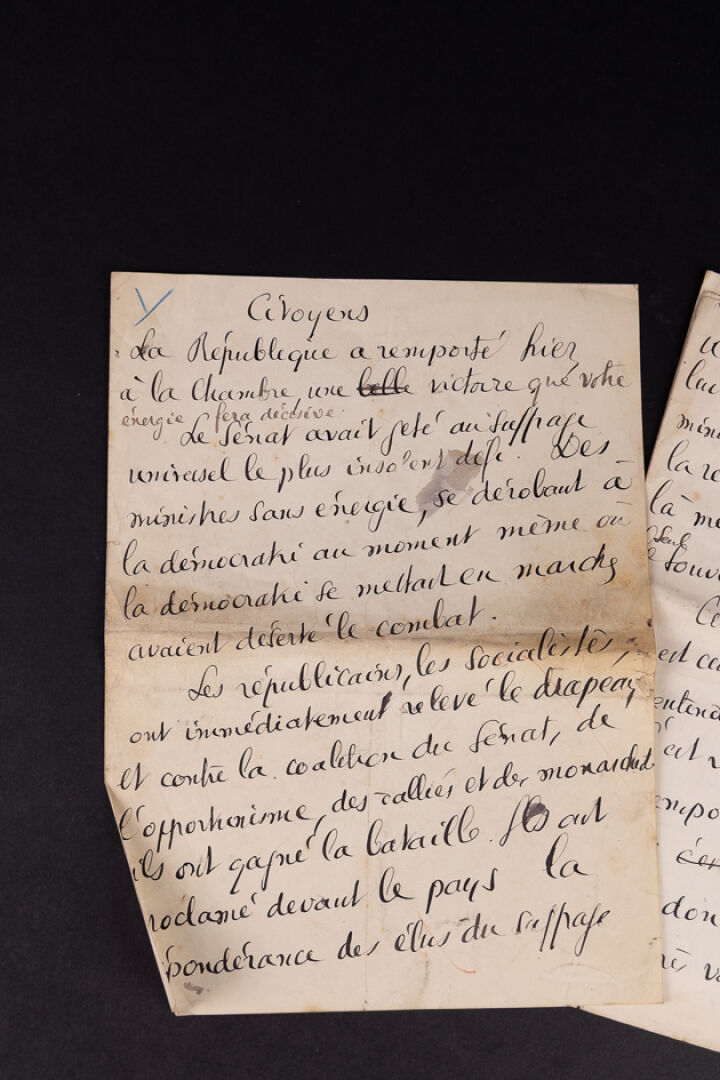 Citoyens
La République a remporté hier
à la Chambre, une belle victoire que votre
énergie fera décisive.
Le Sénat avait jeté au suffrage
universel le plus insolent défi. Des
ministres sans énergie, se dérobant à
la démocratie au moment même où
la démocratie se mettait en marche
avaient déserté le combat.
Les républicains, les socialistes,
ont immédiatement relevé le drapeau,
et contre la coalition du Sénat, de
l'opportunisme, des ralliés et des monarchistes
ils ont gagné la bataille. Ils ont
roclamé devant le pays la
pondérance des élus du suffrage
la re
là mê
seul
souv
est ca
entend
est
empo
don